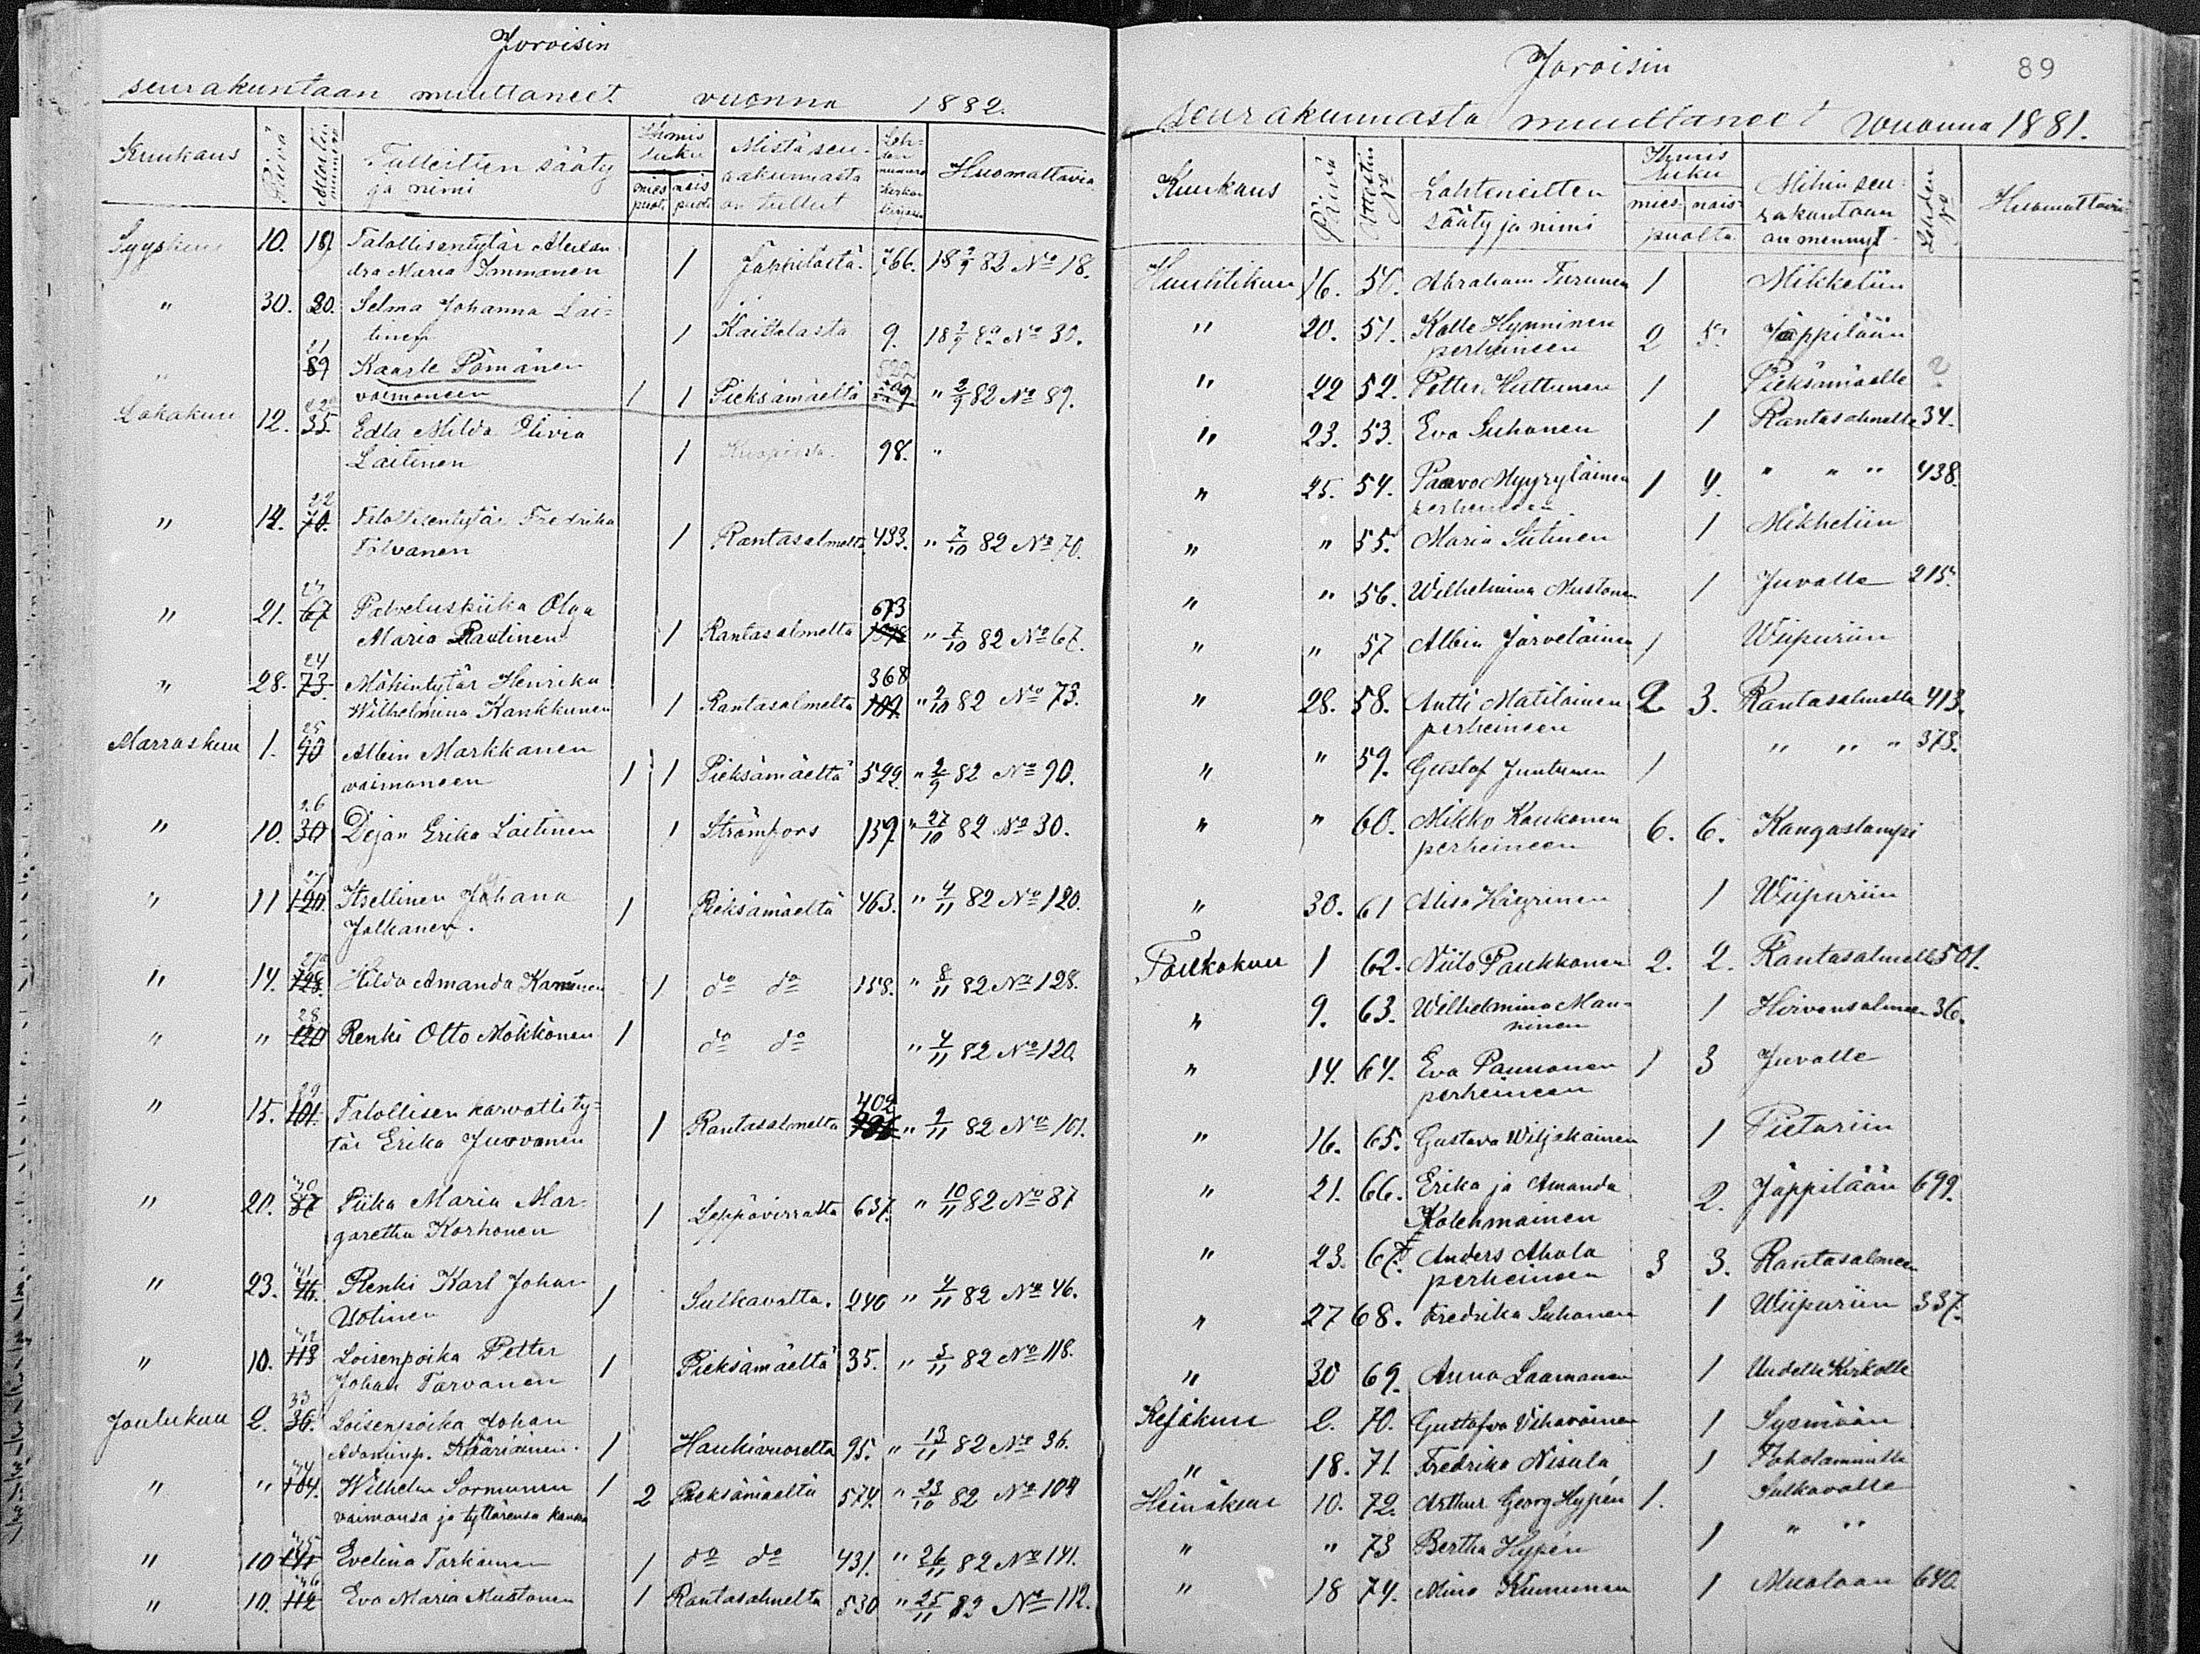 Joroisin
seurakuntaan muuttaneet vuonna 1882.
Kuukaus Päivä Tulleitten sääty ja nimi mies puol. nais puol. Mistä seurakunnasta on tullut Huomattavia
Syyskuu 10. Talollisentytär Alexan-
dra Maria Immonen 1 Jäppilästä 766. 18 2/9 82 No 18.
" 30. 20. Selma Johanna Lai-
tinen 1 9. No 30.
" 21 89 Kaarle Pömänen
vaimoneen 1 1 Pieksämäeltä " 2/9 82 No 89.
Lokakuu 12. 35. Edla Milda Olivia
Laitinen 1 98. "
" 14. 22 70. Talollisentytär Fredrika
Tolvanen 1 Rantasalmelta 433. " 7/10 82 No 70.
" 21. 23 67 Palveluspiika Olga
Maria Rautinen 1 Rantasalmelta 673 " 7/10 82 No 67.
" 28. 24 73 Mäkintytär Henrika
Wilhelmina Kankkunen 1 Rantasalmelta 368 109 " 2/10 82 No 73.
Marraskuu 1. 25 90 Albin Markkanen
vaimoneen 1 1 Pieksämäeltä 599. " 2/9 82 No 90.
" 10. 26 30 Dejan Erika Laitinen 1 Strömfors 159. " 27/10 82 No 30.
" 11 27 120. Itsellinen Johana
Jalkanen. 1 Pieksämäeltä 463. " 4/11 82 No 120.
" 14. 128. Hilda Amanda 1 do do 158. " 8/11 82 No 128.
" " 28. 120 Renki Otto Mökkönen 1 do do " 4/11 82 No 120.
" 15. 29 101. Talollisen kasvattity-
tär Erika Juvonen 1 Rantasalmelta 402 " 2/11 82 No 101.
" 20. 30 87 Piika Maria Mar-
garetha Korhonen 1 Leppävirralta 637. " 10/11 82 No 87
" 23. 31 46. Renki Karl Johan
Uotinen 1 Sulkavalta. 240 " 4/11 82 No 46.
" 10. 32 118 Loisenpoika Petter
Johan Tarvanen 1 Pieksämäeltä 35. " 3/11 82 No 118.
Joulukuu 2. 33 36. Loisenpoika Johan
Adaminp. Kääriäinen. 1 Haukivuorelta 95. " 13/11 82 No 36.
" " 34 104. Wilhelm Sormunen 1 2 Pieksämäeltä 574. " 23/10 82 No 104
vaimonsa ja tyttärensä kanssa
" 10 35 141 Evelina Tarkiainen 1 do do 431. " 26/11 82 No 141.
" 10. 36 112 Eva Maria Mustonen 1 Rantasalmelta 530 " 25/11 82 No 112.
89
Joroisin
seurakunnasta muuttaneet vuonna 1881.
Kuukaus Päivä No Lähteneitten sääty ja nimi mies- nais- puolta Mihin seurakuntaan on mennyt Lehden No Huomattavia
Huhtikuu 16. 50. Abraham Turunen 1 Mikkeliin
" 20. 51. Kalle Hynninen
perheineen 2 5. Jäppilään
" 22 52. Petter Huttunen 1 Pieksämäelle ?
" 23. 53. Eva Suhonen 1 Rantasalmelle 34.
" 25. 54. Paavo Myyryläinen
perheineen 1 4. " " " 438.
" " 55. Maria Sutinen 1 Mikkeliin
" " 56. Wilhelmina Mustonen 1 Juvalle 215.
" " 57 Albin Järveläinen 1 Wiipuriin
" 28. 58. Antti Matilainen
perheineen 2 3. Rantasalmelle 413.
" " 59. Gustaf Juntunen 1 " " " 378.
" " 60. Mikko Kaukonen
perheineen 6. 6. Kangaslampi
" 30. 61 Alisa Häyrinen 1 Wiipuriin
Toukokuu 1 62. Niilo Paukkonen 2. 2. Rantasalmelle 501.
" 9. 63. Wilhelmina Man-
ninen 1 Hirvensalmeen 36.
" 14. 64. Eva Paunonen
perheineen 1 3 Juvalle
" 16. 65. Gustava Wiljakainen 1 Pietariin
" 21. 66. Erika ja Amanda
Kolehmainen 2. Jäppilään 699.
" 23. 67. Anders Ahola
perheineen 3 3. Rantasalmeen
" 27 68. Fredrika Suhonen 1 Wiipuriin 337.
" 30 69. Anna Laamanen 1 Uudelle Kirkolle
Kesäkuu 2. 70. Gustafva Vihavainen 1 Sysmään
" 18. 71. Fredrika Nisula 1
Heinäkuu 10. 72. Arthur Georg Hypén 1. Sulkavalle
" " 73 Bertha Hypén 1 " "
" 18 74. Mina Kinnunen 1 Muolaan 640.